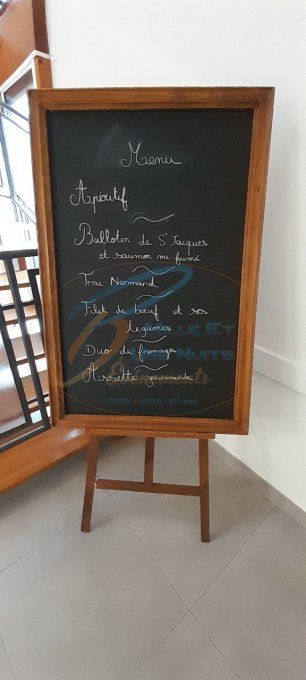 Menu
Apéritif
Ballotin de St Jacques
et saumon mi fumé
Trou Normand
Filet de bœuf et ses
légumes
Duo de fromages
Assiette gourmande
2000 - 2020 : 20 ans